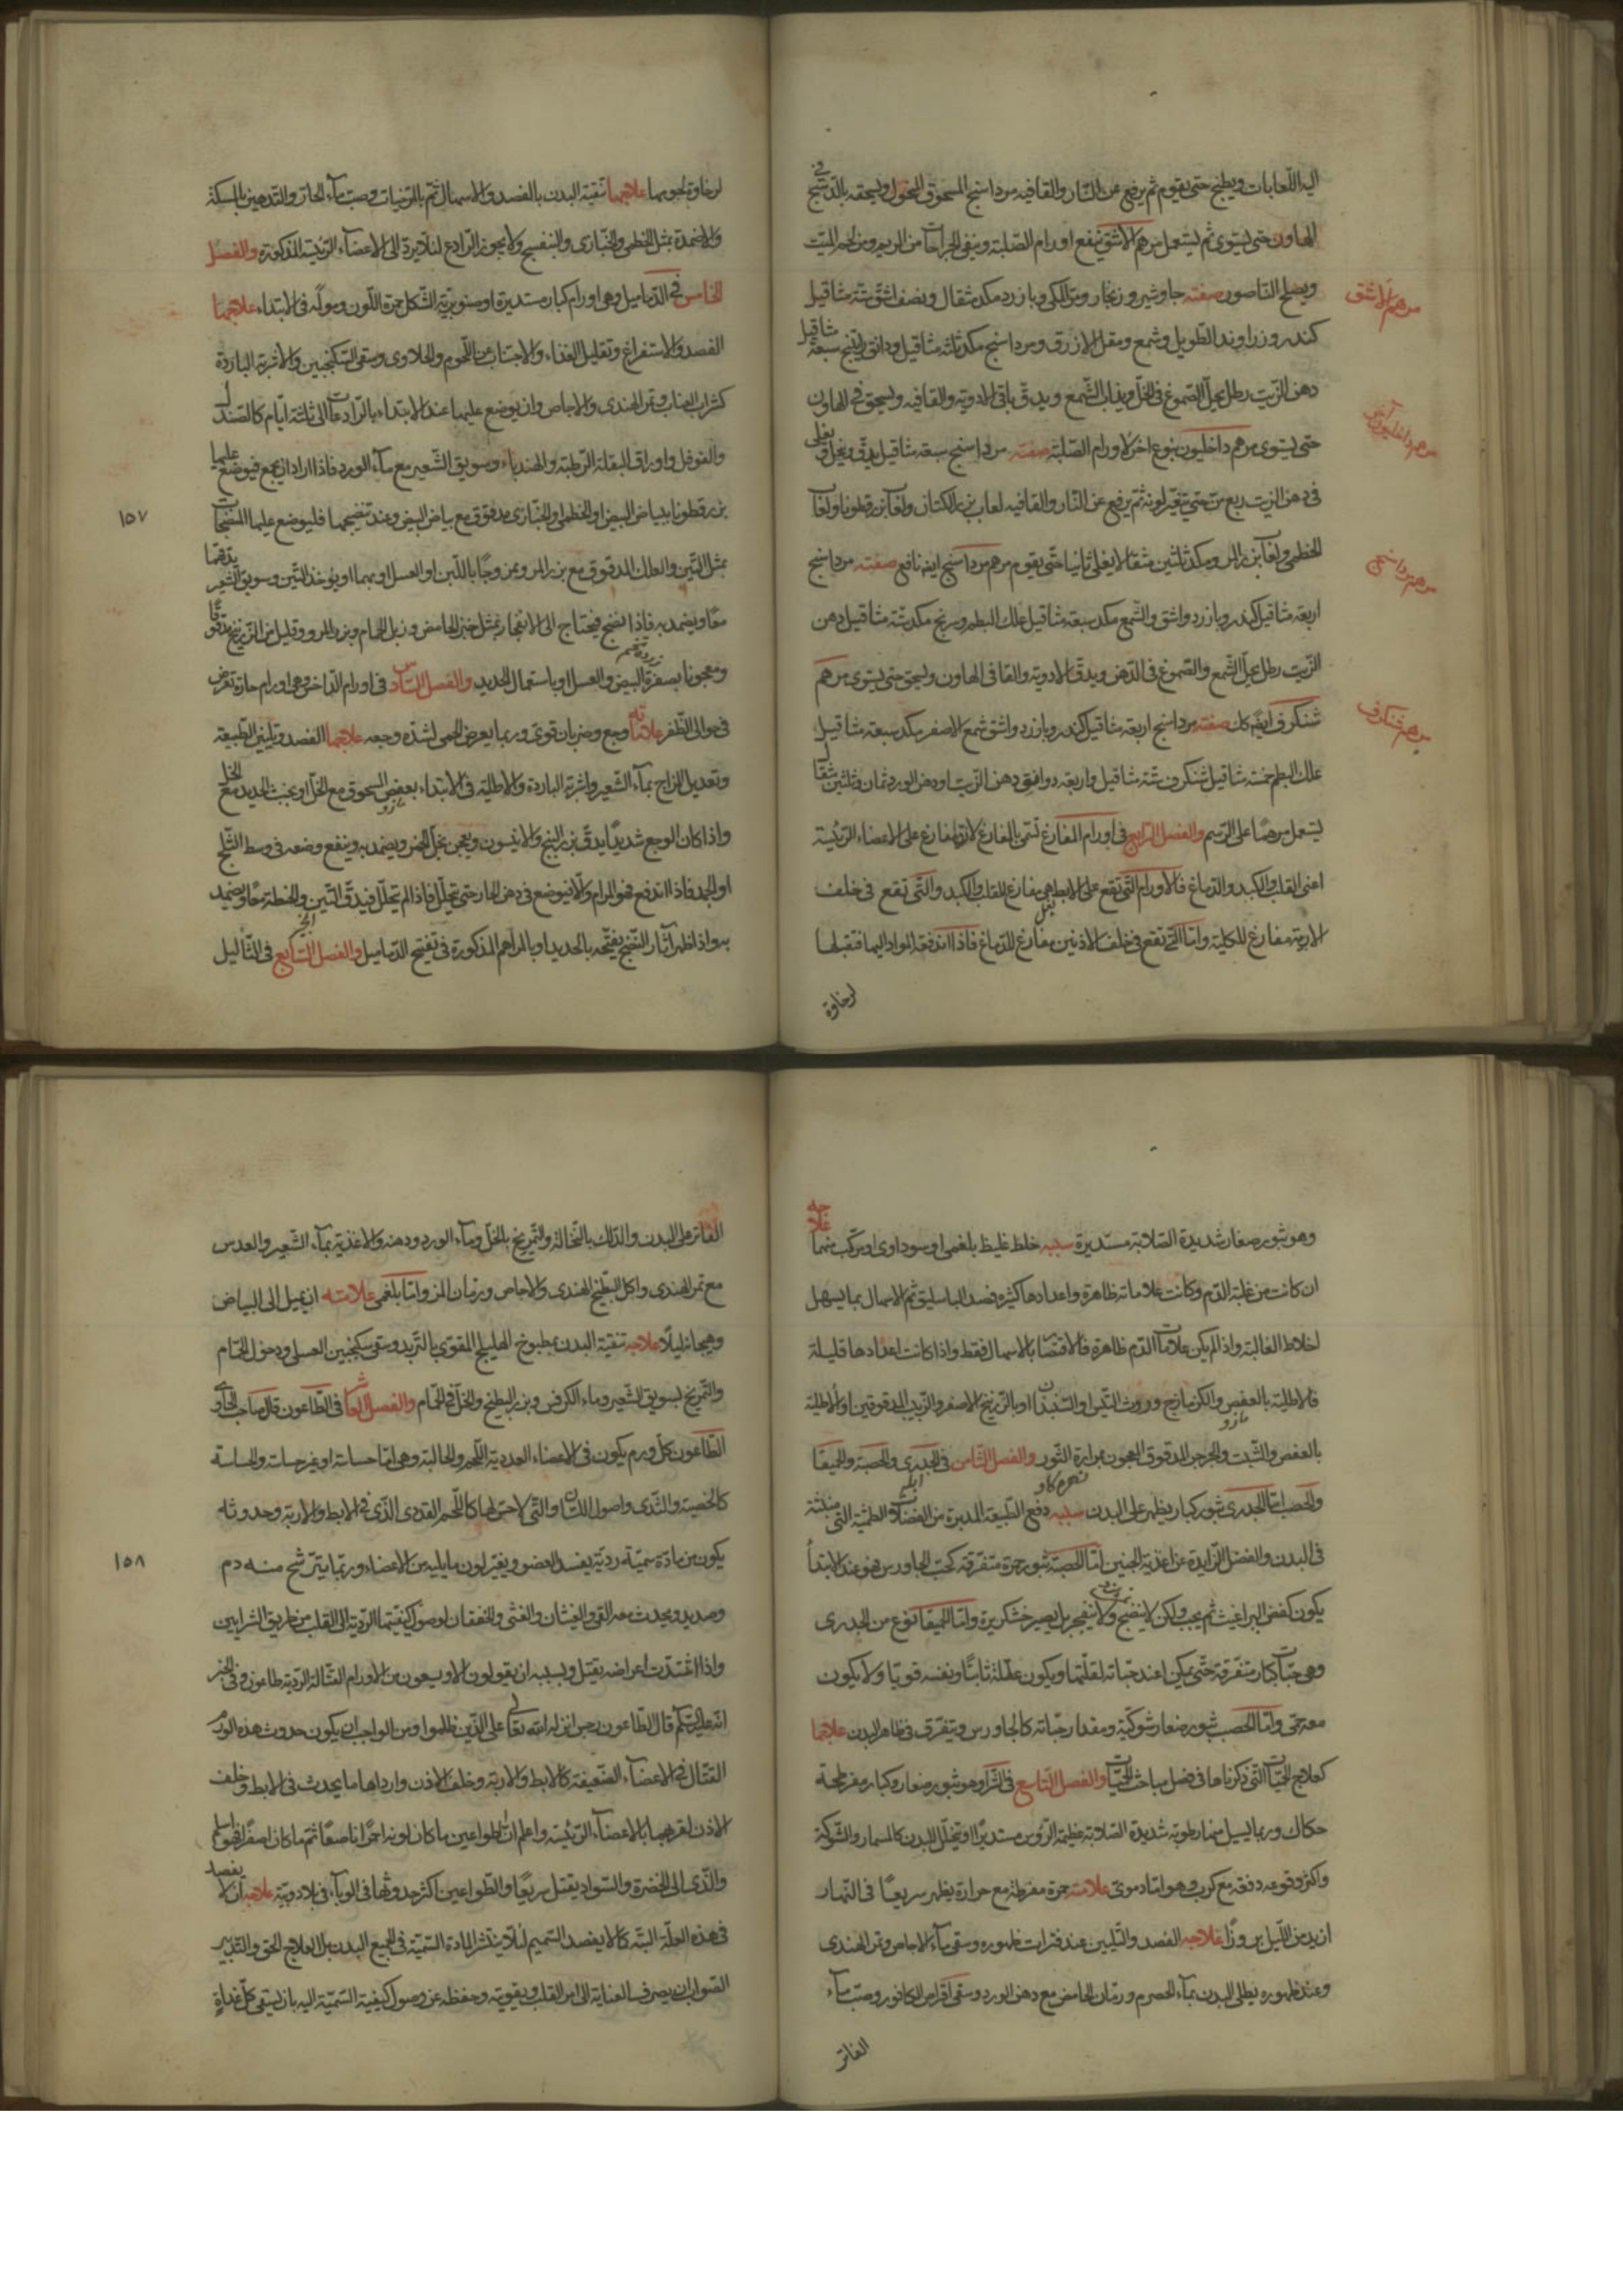 اليه اللعابات ويطبخ حتى يقوم ثم يرفع عن النار والقا فيه مرداسنج المسحوق المنخول ويسحقه بالدستج في
الهاون حتى يستوى ثم يستعمل مرهم الاشق ينفع اورام الصلبة وينقى الجراحات من الريم ومن لحم الميت
ويصلح الناصور صفته جاوشير وزنجار ومر المكى وبازرد مكد مثقال ونصف اشق ستة مثاقيل
مرهم الاشق
كندر وزراوند الطويل وشمع ومقل الازرق ومرداسنج مكد ثلثة مثاقيل ودانق راتينج سبعة مثاقيل
دهن الزيت رطل يحل الصموغ فى الخل ويذاب الشمع ويدق باقى الادوية والقا فيه ويسحق فى الهاون
حتى يستوى مرهم داخليون بنوع اخر لاورام الصلبة صفته مرداسنج سبعة مثاقيل يدق وينخل ويغلى
مرهم داخليون آخر
فى دهن الزيت ربع من حتى تتغير لونه ثم يرفع عن النار والقا فيه لعاب بزر الكتان ولعاب بزر قطونا ولعاب
الخطمى ولعاب بزر المر ومكد ثلثين مثقالا يغلى ثانيا حتى يقوم مرهم مرداسنج ايضه نافع صفته مرداسنج
مرهم مرداسنج
اربعة مثاقيل كندر وبازرد واشق والشمع مكد سبعة مثاقيل علك البطم وسرنج مكد ستة مثاقيل دهن
الزيت رطل يحل الشمع والصموغ فى الدهن ويدق الادوية والقا فى الهاون ويسحق حتى يستوى مرهم
شنكرف ايضه كك صفته مرداسنج اربعة مثاقيل كندر وبازرد واشق شمع الاصفر مكد سبعة مثاقيل
مرهم شنكرف
علك البطم خمسة مثاقيل شنكرف ستة مثاقيل واربعة دوانق دهن الزيت او دهن الورد ثمان وثلثين مثقالا
يستعمل مرهما على الرسم والفصل الرابع فى اورام المفارغ تسمى بالمفارغ لانها مفارغ على الاعضاء الرئيسة
اعنى القلب والكبد والدماغ فالاورام التى تقع على الابط هى مفارغ للقلب والكبد والتى تقع فى خلف
الاربية مفارغ للكلية واما التى تقع فى خلف الاذنين مفارغ للدماغ فاذا اندفعت المواد اليها فتقبلها
لرخاوة
لرخاوة لحومها علاجها تنقية البدن بالفصد والاسهال ثم بالمرخيات وصب ماء الحار والتدهين بالمسكنة
والاضمدة بمثل الخطمى والخبازى والبنفسج ولا يجوز الرادع لئلا يرد الى الاعضاء الرئيسة المذكورة والفصل
الخامس فى الدماميل وهى اورام كبار مستديرة او صنوبرية الشكل حمرة اللون ومولمة فى الابتداء علاجها
الفصد والاستفراغ وتقليل الغذاء والاجتناب عن اللحوم والحلاوى وسقى السكنجبين والاشربة الباردة
كشراب العناب وتمر الهندى والاجاص وان يوضع عليها عند الابتداء بالرادعات الى ثلثة ايام كالصندل
والفوفل واوراق البقلة الرطبة والهندباء وسويق الشعير مع ماء الورد فاذا اراد ان يجمع فيوضع عليها
بزر قطونا ببياض البيض او الخطمى والخبازى مدقوق مع بياض البيض وعند تنضيجها فليوضع عليها المنضجات
١٥٧
بمثل التين والعلك المدقوق مع بزر المر وممزوجا باللبن او العسل او بهما او يوخذ التين وسويق الشعير يدقهما
معا ويضمد به فاذا نضج فيحتاج الى الانفجار بمثل خبز الحامض وزبل الحمام وبزر المر وقليل من الزرنيخ مدقوقا
ومعجونا بصفرة البيض والعسل او باستعمال الحديد والفصل السادس فى اورام الداخس وهى اورام حارة تعرض
زرده تخم
فى حوالى الظفر علامته وجع وضربان قوى وربما يعرض الحمى لشدة وجعه علاجها الفصد وتليين الطبيعة
وتعديل المزاج بماء الشعير واشربة الباردة والاطلية فى الابتداء بعفص المسحوق مع الخل او بخبث الحديد مع الخل
مازو
واذا كان الوجع شديدا يدق بزر البنج والانيسون ويعجن بخل الخمر ويضمد به وينفع وضعه فى وسط الثلج
او الجمد فاذا اندفع فهو المرام والا فيوضع فى دهن الحار حتى يتحلل فاذا لم يتحلل فيدق التين والحنطة معا ويضمد
به واذا ظهر آثار النضج يفتحه بالحديد او بالمراهم المذكورة فى تفتيح الدماميل والفصل السابع فى الثآليل
وهو بثور صغار شديدة الصلابة مستديرة سببه خلط غليظ بلغمى او سوداوى او مركب منهما علاجه
ان كانت من غلبة الدم وكانت علاماته ظاهرة واعدادها كثيرة فصد الباسليق ثم الاسهال بما يسهل
اخلاط الغالبة واذا لم يكن علامات الدم ظاهرة فالاقتصار بالاسهال فقط واذا كانت اعدادها قليلة
فالاطلية بالعفص والكزمازج وروث التيس او السندان او بالزرنيخ الاصفر والزبيب المدقوقين او الاطلية
مازو
بالعفص والشبت والحرحر المدقوق المعجون بمرارة الثور والفصل الثامن فى الجدرى والحصبة والحميقا
زهره كاو
والحصب اما الجدرى بثور كبار يظهر على البدن سببه دفع الطبيعة المدبرة من الفضلات الطمثية التى منبثة
فى البدن والفضل الزايدة عن اغذية الجنين اما الحصبة بثور حمرة متفرقة كحب الجاورس هو عند الابتدأ
يكون كعض البراغيث ثم يجب ولكن لا ينضج ولا ينفجر بل يصير خشكريشة واما الحميقا نوع من الجدرى
وهى حبات كبار متفرقة حتى يمكن عند حباته لقلتها ويكون عقله ثابتا ونفسه قويا ولا يكون
معه حمى واما الحصب بثور صغار شوكية ومقدار حباته كالجاورس ويتفرق فى ظاهر البدن علاجها
كعلاج الحميات التى ذكرناها فى فصل مباحث الحميات والفصل التاسع فى الشرا وهو بثور صغار وكبار مفرطحة
حكاك وربما يسيل منها رطوبة شديدة الصلابة عظيمة الروس مستديرا او يتخلل البدن كالمسمار والشوكة
واكثر وقوعه دفعة مع كرب وهو اما دموى علامته حمرة مفرطة مع حرارة يظهر سريعا فى النهار
ازيد من الليل بروزا علاجه الفصد والتليين عند فترات ظهوره وسقى ماء الاجاص وتمر الهندى
وعند ظهوره يطلى البدن بماء الحصرم ورمان الحامض مع دهن الورد وسقى اقراص الكافور وصب ماء
الفاتر
الفاتر على البدن والدلك بالنخالة والتمريخ بالخل وماء الورد ودهنه والاغذية بماء الشعير والعدس
مع تمر الهندى واكل البطيخ الهندى والاجاص ورمان المز واما بلغمى علامته ان يميل الى البياض
وهيجانه ليلا علاجه تنقية البدن بمطبوخ الهليلج المقوى بالتربد وسقى سكنجبين العسلى ودخول الحمام
والتمريخ بسويق الشعير وماء الكرفس وبزر البطيخ والخل فى الحمام والفصل العاشر فى الطاعون قال صاحب الحاوى
الطاعون كل ورم يكون فى الاعضاء الغددية اللحم والخالبة وهى اما حساسة او غير حساسة والحساسة
كالخصية والثدى واصول اللسان او التى لا حس لها كاللحم الغددى الذى فى الابط والاربية وحدوثه
يكون من مادة سمية ردية يفسد العضو ويغير لون ما يليه من الاعضاء وربما يترشح منه دم
١٥٨
وصديد ويحدث معه القى والغثيان والغشى والخفقان لوصول كيفيتها الردية الى القلب من طريق الشرايين
واذا اشتدت اعراضه يقتل وبسببه ان يقولون الاو يسعون من الاورام القتالة الردية طاعون وفى الخبر
انه عليه السلام قال الطاعون رجس انزله الله تعالى على الذين ظلموا ومن الواجب ان يكون حدوث هذه الورم
القتال فى الاعضاء الضعيفة كالابط والاربية وخلف الاذن وارداها ما يحدث فى الابط وخلف
الاذن لقربها بالاعضاء الرئيسة واعلم ان الطواعين ما كان لونه احمرا ناصعا ثم ما كان اصفرا فهو اسلم
والذى الى الخضرة والسواد يقتل سريعا والطواعين اكثر حدوثها فى الوباء فى بلاد وبية علاجه ان لا يفصد
فى هذه العلة البتة كما لا يفصد السميم لئلا ينتشر المادة السمية فى جميع البدن بل العلاج الحق والتدبير
الصواب ان يصرف العناية الى امر القلب وتقويته وحفظه عن وصول كيفية السمية اليه بان يسقى كل غداة